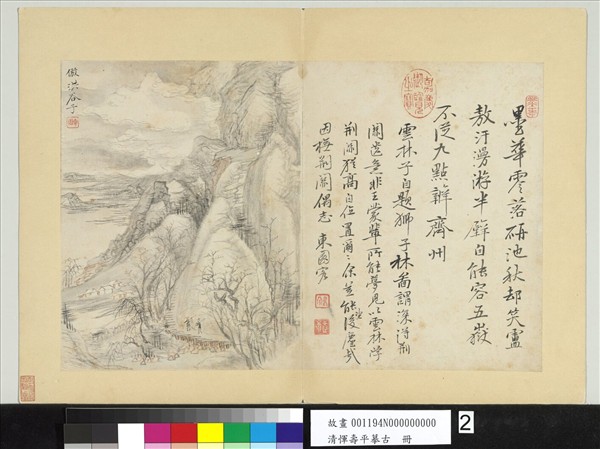 墨華零落硏池秋却笑盧
敖汗漫游半壁自能容五嶽
不逕九點辨齊州
雲林子自題獅子林啚謂深得荊
關遺意非王蒙輩所能夢見以雲林學
荊關猶高自位置爾爾余豈能後塵哉
因橅荊關偶志 東園客
倣洪谷子
故畫 001194N000000000
清惲壽平摹古 冊
2